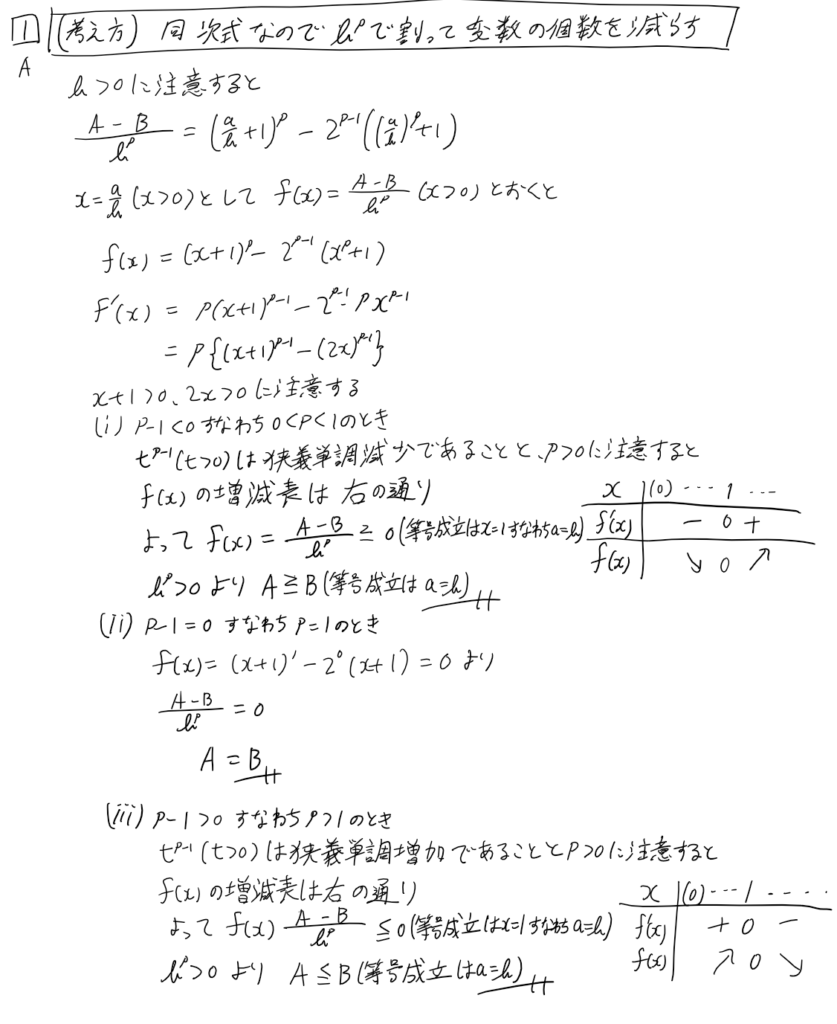 1 (考え方) 同次式なのでb^pで割って変数の個数を減らす
A
b>0に注意すると
(A-B)/b^p = (a/b+1)^p - 2^{p-1}((a/b)^p+1)
x=a/b (x>0)として f(x)=(A-B)/b^p (x>0) とおくと
f(x) = (x+1)^p - 2^{p-1}(x^p+1)
f'(x) = p(x+1)^{p-1} - 2^{p-1}·px^{p-1}
= p{(x+1)^{p-1}-(2x)^{p-1}}
x+1>0、2x>0に注意する
(i) p-1<0すなわち0<p<1のとき
t^{p-1}(t>0)は狭義単調減少であることと、p>0に注意すると
f(x)の増減表は右の通り
x (0) … 1 …
よって f(x) = (A-B)/b^p ≧ 0(等号成立はx=1すなわちa=b)
f'(x) - 0 +
f(x) ↘ 0 ↗
b^p>0より A≧B(等号成立は a=b)
(ii) p-1=0 すなわちp=1のとき
f(x)= (x+1)^1 - 2^0(x+1) = 0 より
(A-B)/b^p = 0
A = B
(iii) p-1>0 すなわちp>1のとき
t^{p-1}(t>0)は狭義単調増加であることとp>0に注意すると
f(x)の増減表は右の通り
x (0) … 1 ‥‥
よって f(x) (A-B)/b^p ≦0(等号成立はx=1すなわちa=b)
f'(x) + 0 -
f(x) ↗ 0 ↘
b^p>0 より A≦B(等号成立はa=b)